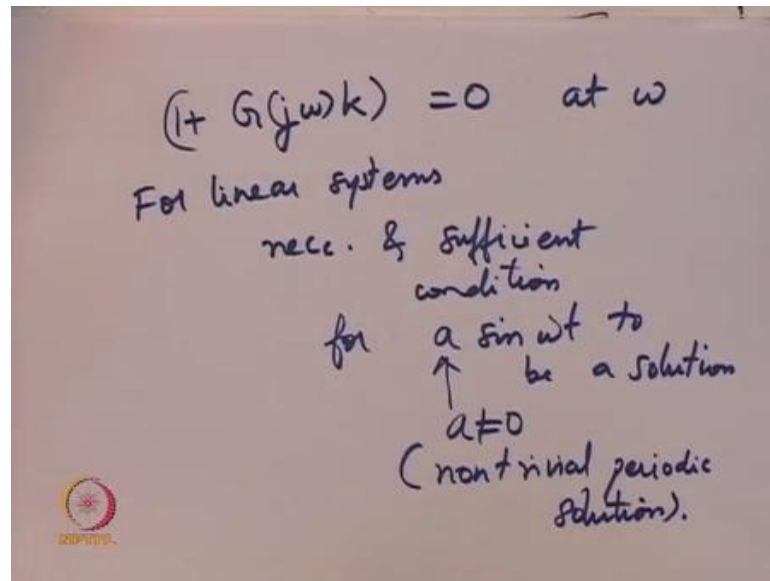 (1+ G(jω)k) = 0 at ω
For linear systems
nece. & sufficient
condition
for a sin ωt to
be a solution
↑
a≠0
(nontrivial periodic
solution).
NPTEL